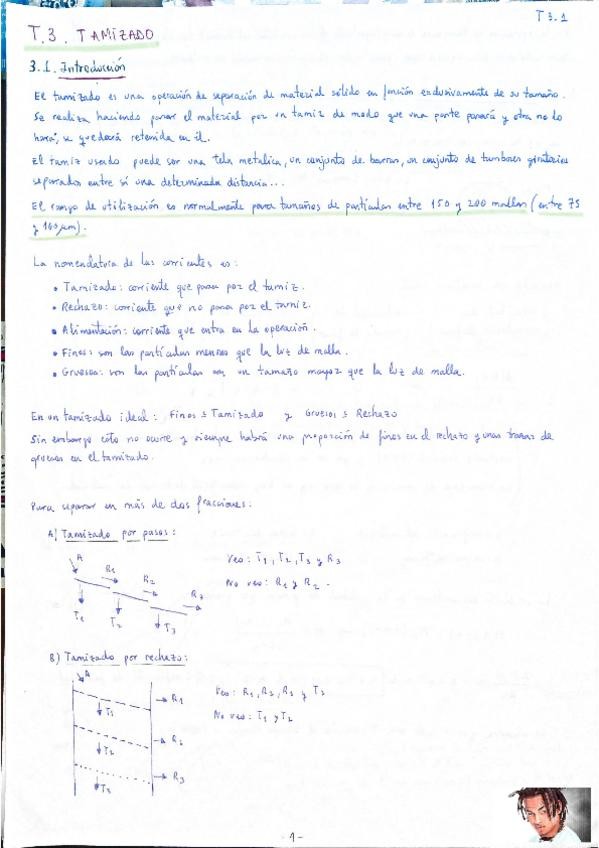 T3.1
T.3. TAMIZADO
3.1. Introducción
El tamizado es una operación de separación de material sólido en función exclusivamente de su tamaño.
Se realiza haciendo pasar el material por un tamiz de modo que una parte pasará y otra no lo
hará, se quedará retenida en él.
El tamiz usado puede ser una tela metálica, un conjunto de barras, un conjunto de tambores giratorios
separados entre sí una determinada distancia...
El rango de utilización es normalmente para tamaños de partículas entre 150 y 200 mallas (entre 75
y 100 µm).
La nomenclatura de las corrientes es:
• Tamizado: corriente que pasa por el tamiz.
• Rechazo: corriente que no pasa por el tamiz.
• Alimentación: corriente que entra en la operación.
• Finos: son las partículas menores que la luz de malla.
• Gruesos: son las partículas con un tamaño mayor que la luz de malla.
En un tamizado ideal: Finos = Tamizado y Gruesos = Rechazo
Sin embargo esto no ocurre y siempre habrá una proporción de finos en el rechazo y unas trazas de
gruesos en el tamizado.
Para separar en más de dos fracciones:
A) Tamizado por pasos:
A R1 R2 R3
T1 T2 T3
Veo: T1, T2, T3 y R3
No veo: R1 y R2.
B) Tamizado por rechazo:
A
R1
T1
R2
T2
R3
T3
Veo: R1, R2, R3 y T3
No veo: T1 y T2
-1-